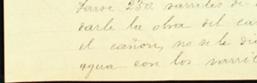 250 barriles de
darle la obra del ca
el cañon, no se le di
agua con los barril